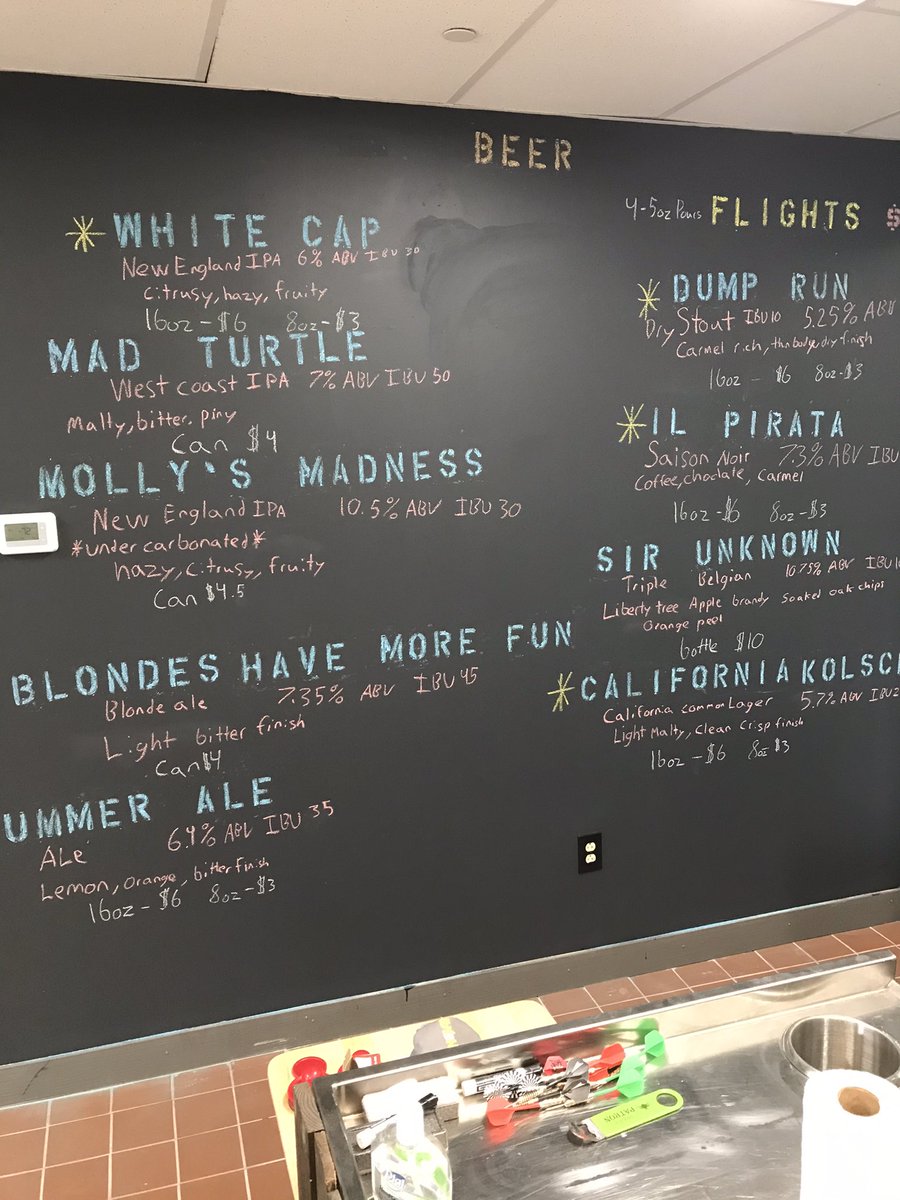 BEER
* WHITE CAP
New England IPA 6% ABV IBU 30
citrusy, hazy, fruity
16oz - $6 8oz - $3
MAD TURTLE
West coast IPA 7% ABV IBU 50
Malty, bitter, piny
Can $4
MOLLY'S MADNESS
New England IPA 10.5% ABV IBU 30
*under carbonated*
hazy, citrusy, fruity
Can $4.5
BLONDES HAVE MORE FUN
Blonde ale 7.35% ABV IBU 45
Light bitter finish
Can $4
UMMER ALE
ALe 6.9% ABV IBU 35
Lemon, orange, bitter finish
16oz - $6 8oz - $3
4-5oz Pours FLIGHTS $
* DUMP RUN
Dry Stout IBU 10 5.25% ABV
Carmel rich, thin body, dry finish
16oz - $6 8oz - $3
* IL PIRATA
Saison Noir 7.3% ABV IBU
Coffee, choclate, carmel
16oz - $6 8oz - $3
SIR UNKNOWN
Triple Belgian 10.75% ABV IBU
Liberty tree Apple brandy Soaked oak chips
Orange peel
bottle $10
* CALIFORNIA KOLSC
California common Lager 5.7% ABV IBU 2
Light Malty, Clean Crisp finish
16oz - $6 8oz $3
PATRON